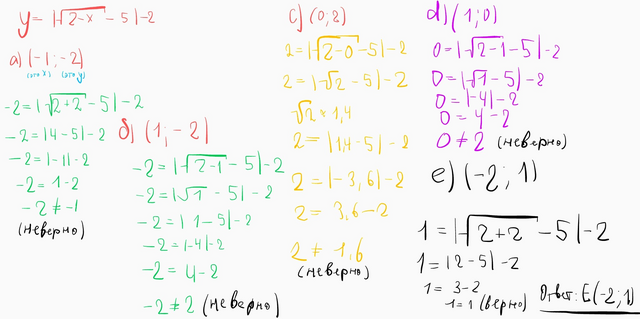 y = |√2-x - 5| - 2
a) (-1; -2)
(это x) (это y)
-2 = |√2+2 - 5| - 2
-2 = |4 - 5| - 2
-2 = |-1| - 2
-2 = 1 - 2
-2 ≠ -1
(неверно)
б) (1; -2)
-2 = |√2-1 - 5| - 2
-2 = |√1 - 5| - 2
-2 = |1 - 5| - 2
-2 = |-4| - 2
-2 = 4 - 2
-2 ≠ 2 (неверно)
c) (0; 2)
2 = |√2-0 - 5| - 2
2 = |√2 - 5| - 2
√2 ≈ 1,4
2 = |1,4 - 5| - 2
2 = |-3,6| - 2
2 = 3,6 - 2
2 ≠ 1,6
(неверно)
d) (1; 0)
0 = |√2-1 - 5| - 2
0 = |√1 - 5| - 2
0 = |-4| - 2
0 = 4 - 2
0 ≠ 2 (неверно)
e) (-2; 1)
1 = |√2+2 - 5| - 2
1 = |2 - 5| - 2
1 = 3 - 2
1 = 1 (верно)
Ответ: E(-2; 1)